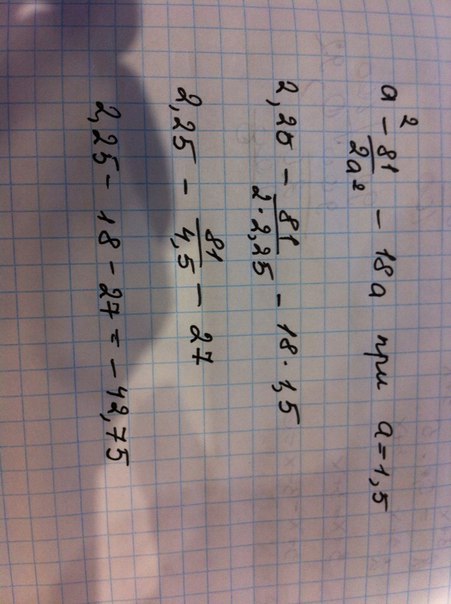 a² - 81/2a² - 18a при a=1,5
2,25 - 81/2·2,25 - 18·1,5
2,25 - 81/4,5 - 27
2,25 - 18 - 27 = -42,75